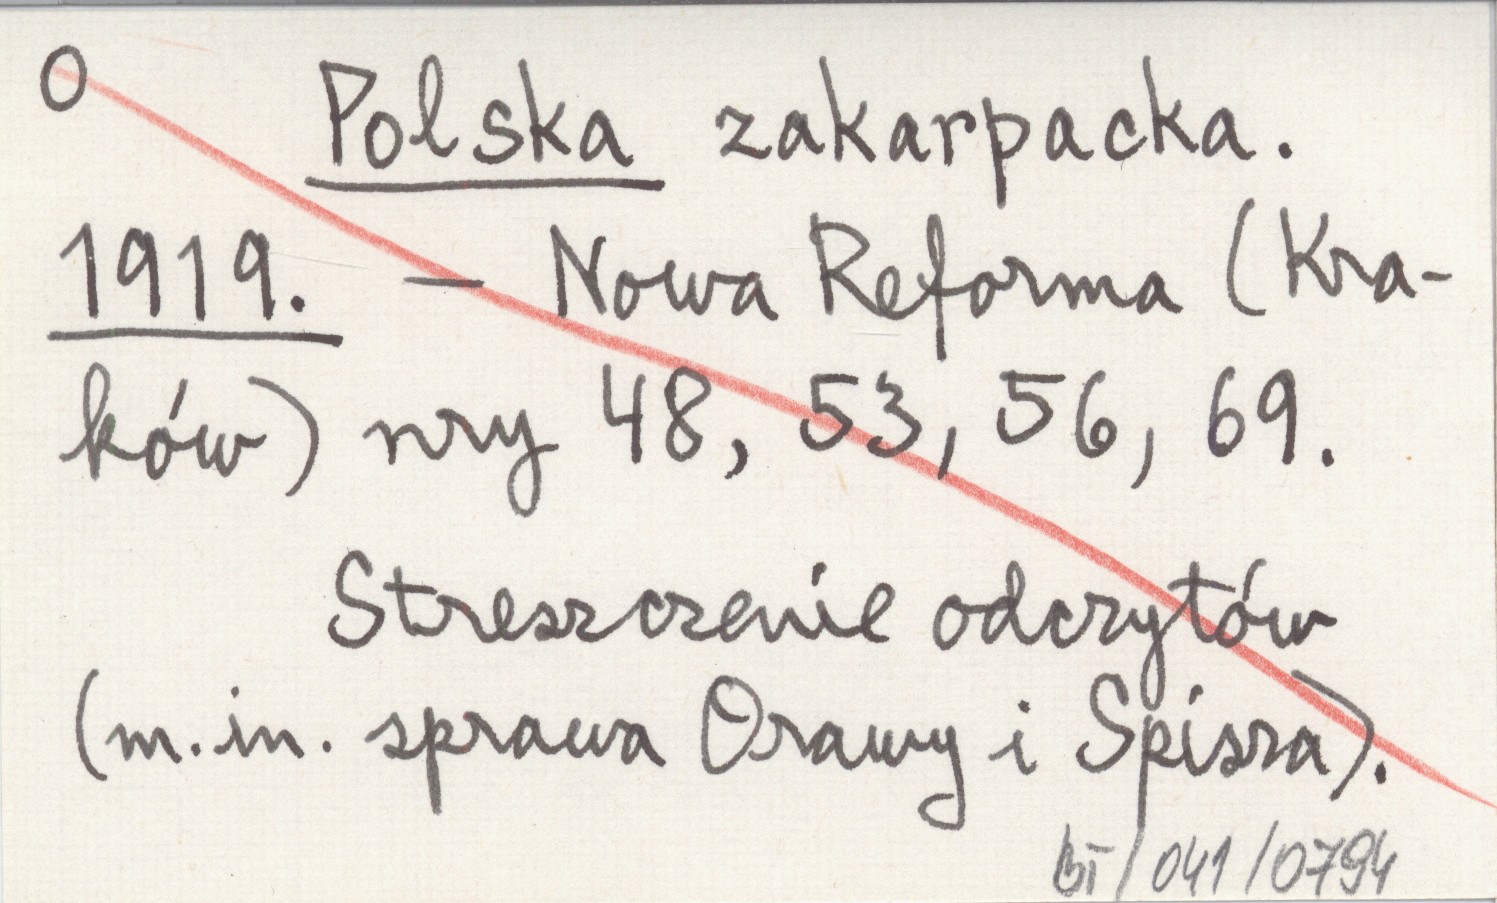 O
Polska zakarpacka.
1919. — Nowa Reforma (Kra-
ków) nry 48, 53, 56, 69.
Streszczenie odczytów
(m.in. sprawa Orawy i Spisza).
BI/041/0794